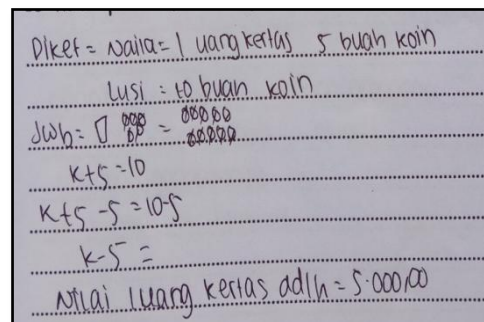 Diket = Naila = 1 uang kertas 5 buah koin
Lusi = 10 buah koin
Jwb = =
K+5 = 10
K+5 -5 = 10-5
K-5 =
Nilai 1 uang kertas adlh = 5.000,00